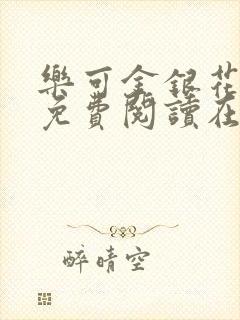 樂可金銀花
免費閱讀在
醉晴空